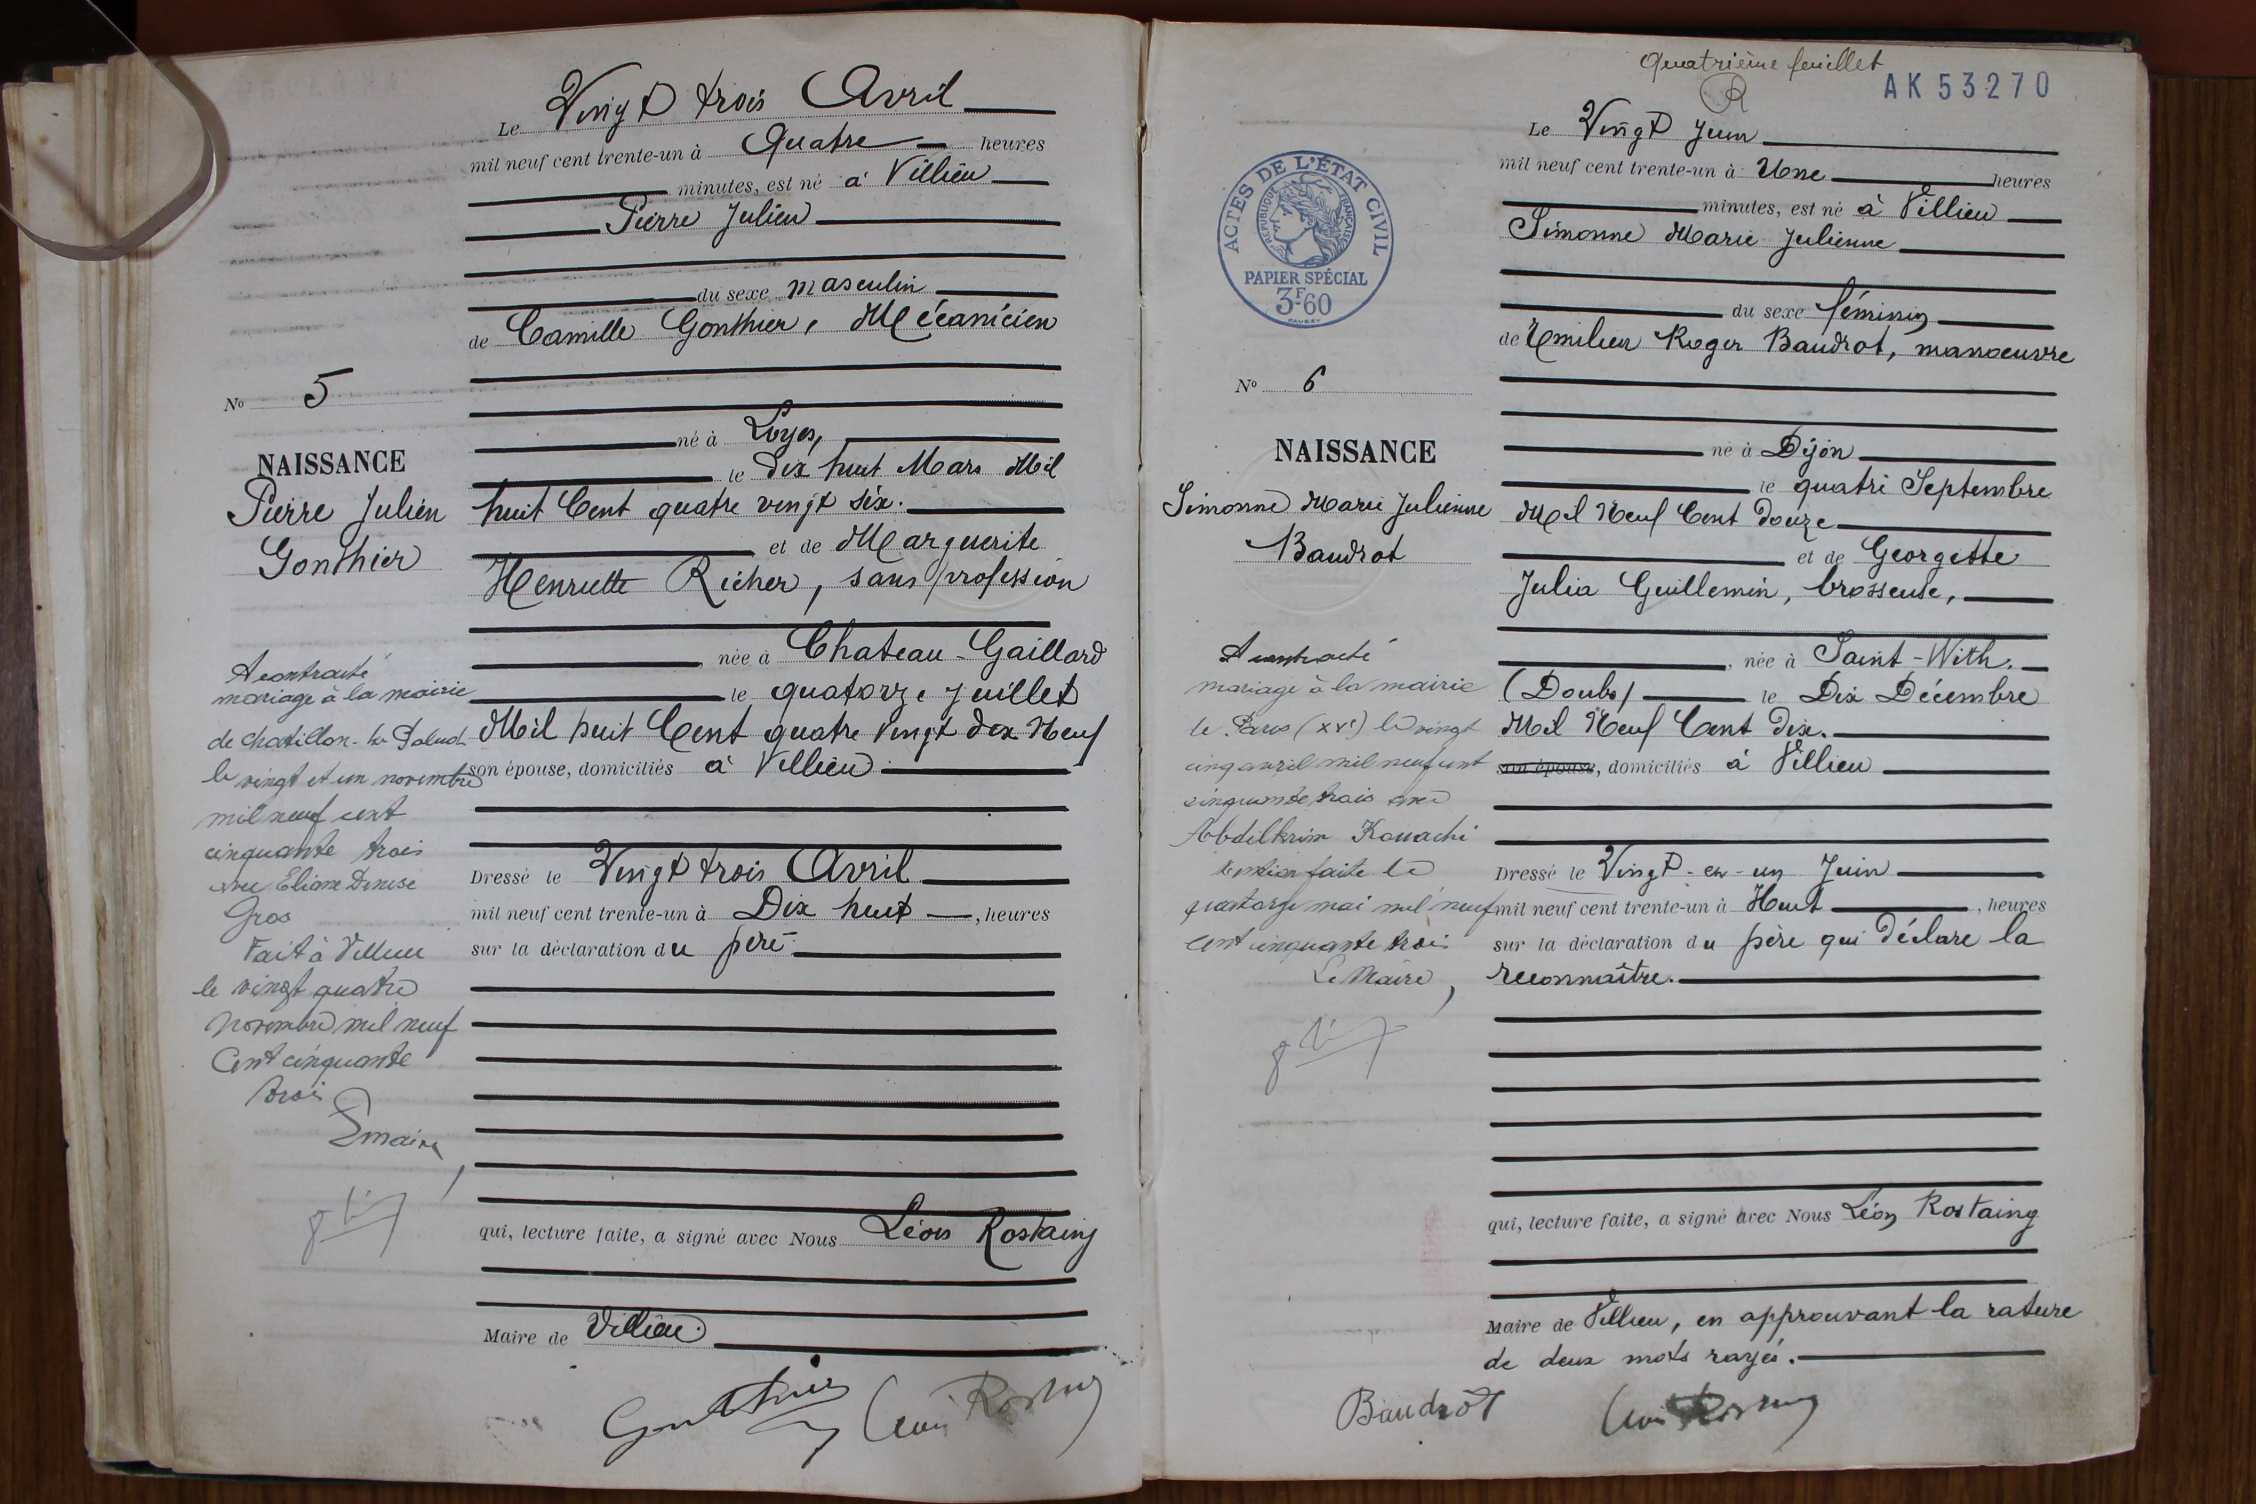 Le Vingt trois Avril
mil neuf cent trente-un à Quatre heures
minutes, est né à Villieu
Pierre Julien
du sexe masculin
de Camille Gonthier, Mécanicien
né à Loyes,
le dix huit Mars Mil
huit Cent quatre vingt six.
et de Marguerite
Henriette Richer, sans profession
née à Chateau-Gaillard
le quatorze Juillet
Mil huit Cent quatre vingt dix Neuf
son épouse, domiciliés à Villieu
Dressé le Vingt trois Avril
mil neuf cent trente-un à Dix huit, heures
sur la déclaration du père
qui, lecture faite, a signé avec Nous Léon Rostaing
Maire de Villieu.
Gonthier
Léon Rostaing
No 5
NAISSANCE
Pierre Julien
Gonthier
A contracté
mariage à la mairie
de Chatillon-la Palud
le vingt et un novembre
mil neuf cent
cinquante trois
avec Eliane Denise
Gros
Fait à Villieu
le vingt quatre
novembre mil neuf
Cent cinquante
trois
Le maire,
quatrième feuillet
AK 53270
Le Vingt Juin
mil neuf cent trente-un à Une heures
minutes, est né à Villieu
Simonne Marie Julienne
du sexe féminin
de Emilien Roger Baudrot, manoeuvre
né à Dijon
le quatre Septembre
Mil Neuf Cent douze
et de Georgette
Julia Guillemin, brosseuse,
née à Saint-With.
(Doubs) le Dix Décembre
Mil Neuf Cent Dix.
son épouse, domiciliés à Villieu
Dressé le Vingt-et-un Juin
mil neuf cent trente-un à Huit, heures
sur la déclaration du père qui déclare la
reconnaître.
qui, lecture faite, a signé avec Nous Léon Rostaing
Maire de Villieu, en approuvant la rature
de deux mots rayés.
Baudrot
Léon Rostaing
ACTES DE L'ÉTAT CIVIL
RÉPUBLIQUE FRANÇAISE
PAPIER SPÉCIAL
3F60
No 6
NAISSANCE
Simonne Marie Julienne
Baudrot
A contracté
mariage à la mairie
de Paris (XVe) le vingt
cinq avril mil neuf cent
cinquante trois avec
Abdelkrim Kouachi
Mention faite le
quatorze mai mil neuf
cent cinquante trois
Le Maire,